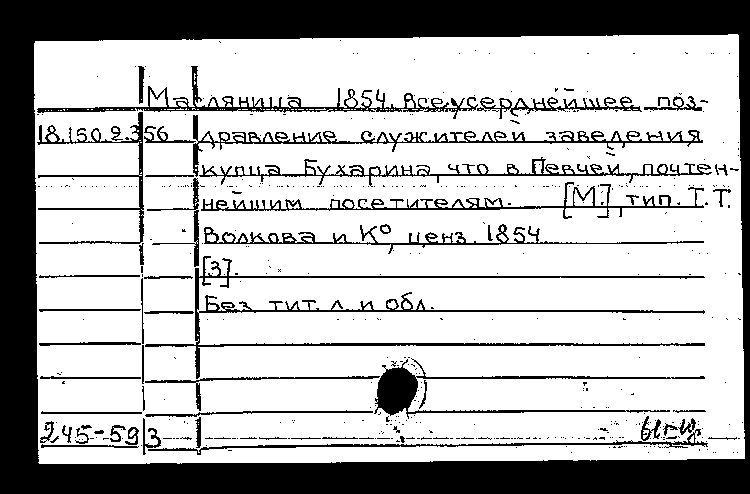 Масляница 1854. Всеусерднейшее поз-
18.150.2.356 дравление служителей заведения
купца Бухарина, что в Певчей, почтен-
нейшим посетителям. [М.], тип. Т.Т.
Волкова и Кº, ценз. 1854
[3].
Без тит. л. и обл.
245-59 3